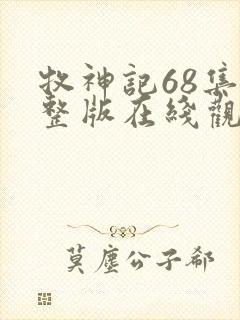 牧神記68集
整版在綫觀
莫塵公子郗